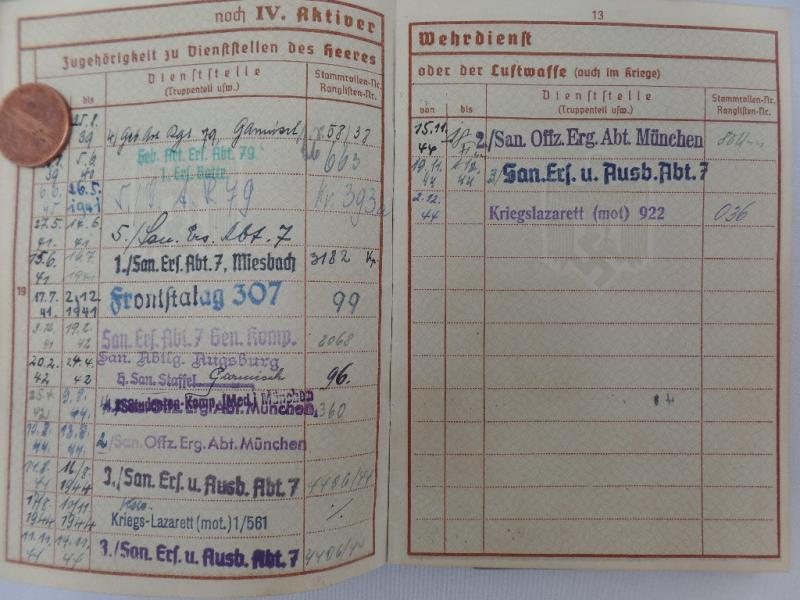 noch IV. Aktiver
Zugehörigkeit zu Dienststellen des Heeres
bis
Dienststelle
(Truppenteil usw.)
Stammrollen-Nr.
Ranglisten-Nr.
39 4/ Geb. Art. Rgt. 79, Garmisch, 58/37
Geb. Art. Ers. Abt. 79
1. Ers. Battr.
5.9. 40 663
26.5. 1941 A. R. 79 Kr. 393a
27.5. 41. 14.6. 41 5./San. Ers. Abt. 7
15.6. 41 1./San. Ers. Abt. 7, Miesbach 3182 Kp
19
17.7. 41. 2.12. 1941 Frontstalag 307 99
41 19.2. 42 San. Ers. Abt. 7 Gen. Komp. 2068
20.2. 42 24.4. 42 San. Abtlg. Augsburg
H. San. Staffel Garmisch 96.
25.4. 42 44. Studenten-Komp. (Med.) München
San. Offz. Erg. Abt. München 360
44. 13.8. 44. 2/San. Offz. Erg. Abt. München
14.8. 44 16/8 1944 3./San. Ers. u. Ausb. Abt. 7 4406/44
17/8 1944 10/11 1944 Kriegs-Lazarett (mot.) 1/561 ./.
11.11. 44 14.11. 44 3./San. Ers. u. Ausb. Abt. 7 4406/44
13
Wehrdienst
oder der Luftwaffe (auch im Kriege)
von
bis
Dienststelle
(Truppenteil usw.)
Stammrollen-Nr.
Ranglisten-Nr.
15.11. 44 18. 2./San. Offz. Erg. Abt. München
19.11. 44 1.12. 44 3/San. Ers. u. Ausb. Abt. 7
2.12. 44 Kriegslazarett (mot) 922 036